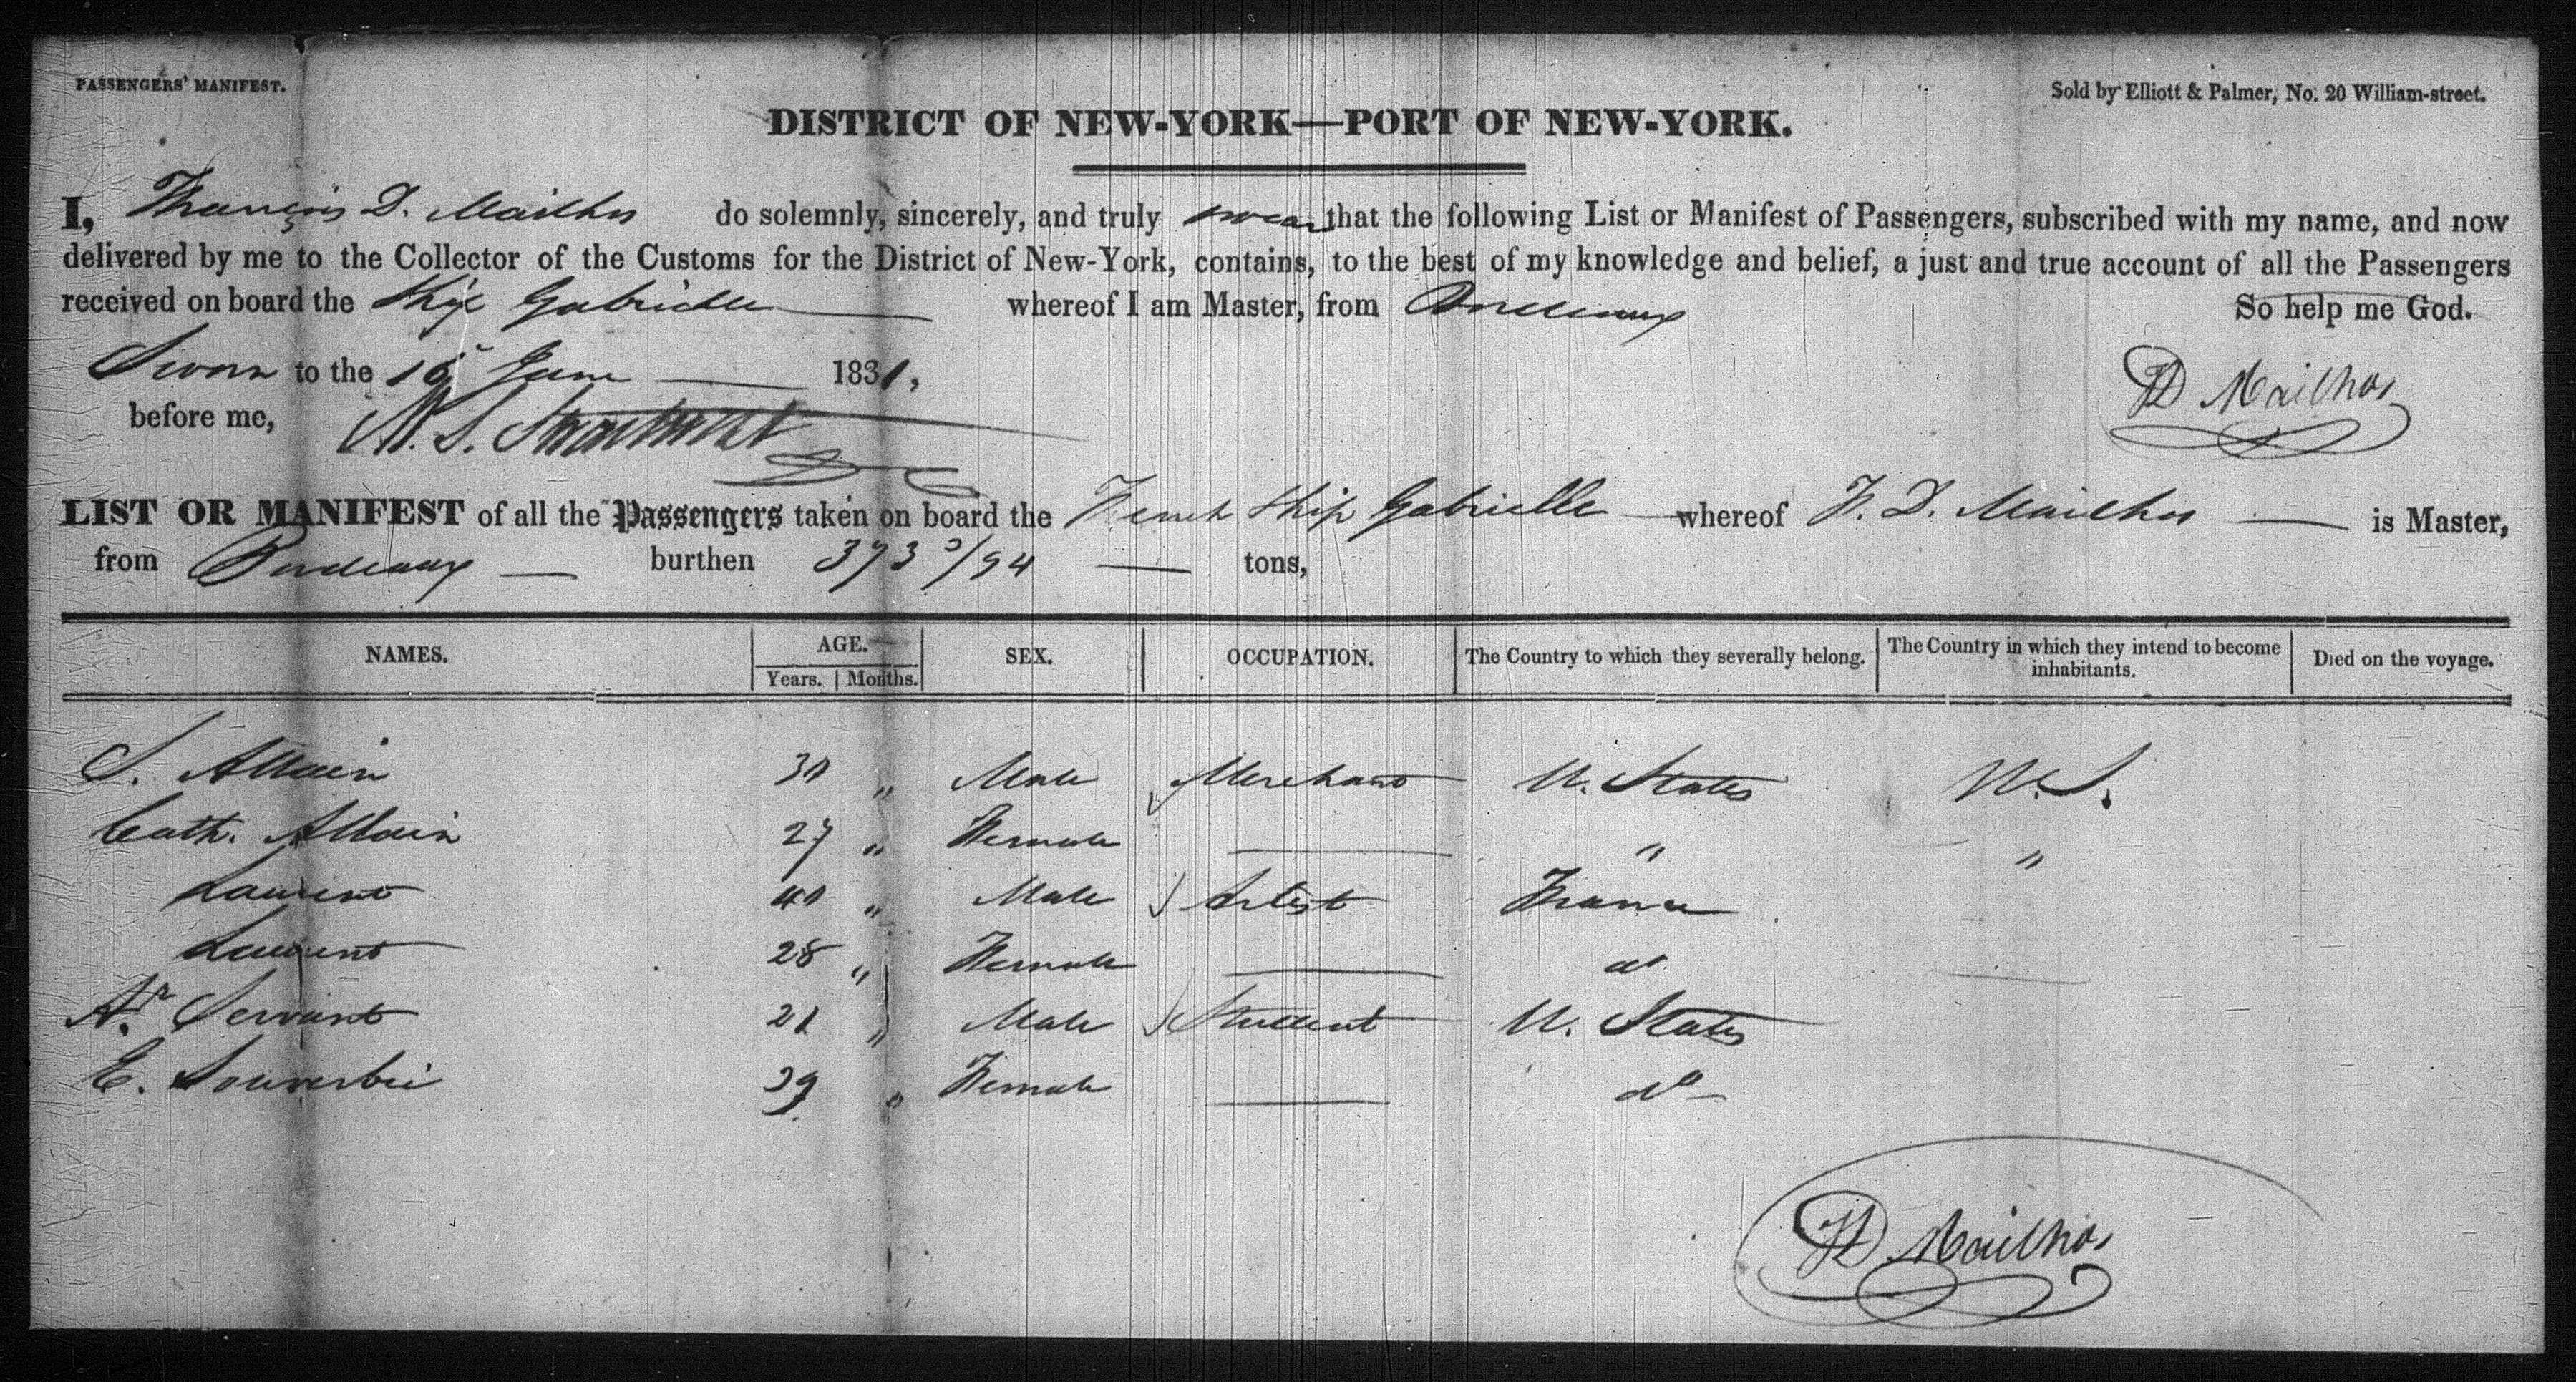 PASSENGERS' MANIFEST.
Sold by Elliott & Palmer, No. 20 William-street.
DISTRICT OF NEW-YORK—PORT OF NEW-YORK.
I, François D. Mailhos do solemnly, sincerely, and truly swear that the following List or Manifest of Passengers, subscribed with my name, and now
delivered by me to the Collector of the Customs for the District of New-York, contains, to the best of my knowledge and belief, a just and true account of all the Passengers
received on board the Ship Gabrielle whereof I am Master, from Bordeaux So help me God.
Sworn to the 16 June 1831,
FD Mailhos
before me,
LIST OR MANIFEST of all the Passengers taken on board the French Ship Gabrielle whereof F. D. Mailhos is Master,
from Bordeaux burthen 373 /94 tons,
NAMES. AGE. Years. Months. SEX. OCCUPATION. The Country to which they severally belong. The Country in which they intend to become inhabitants. Died on the voyage.
S. Allain 30 " Male Merchant U. States U.S.
Cath. Allain 27 " Female — " "
Laurent 40 " Male Artist France
Laurent 28 " Female — do
Ar. Servant 21 " Male Student U. States
E. 39 " Female — do
FD Mailhos